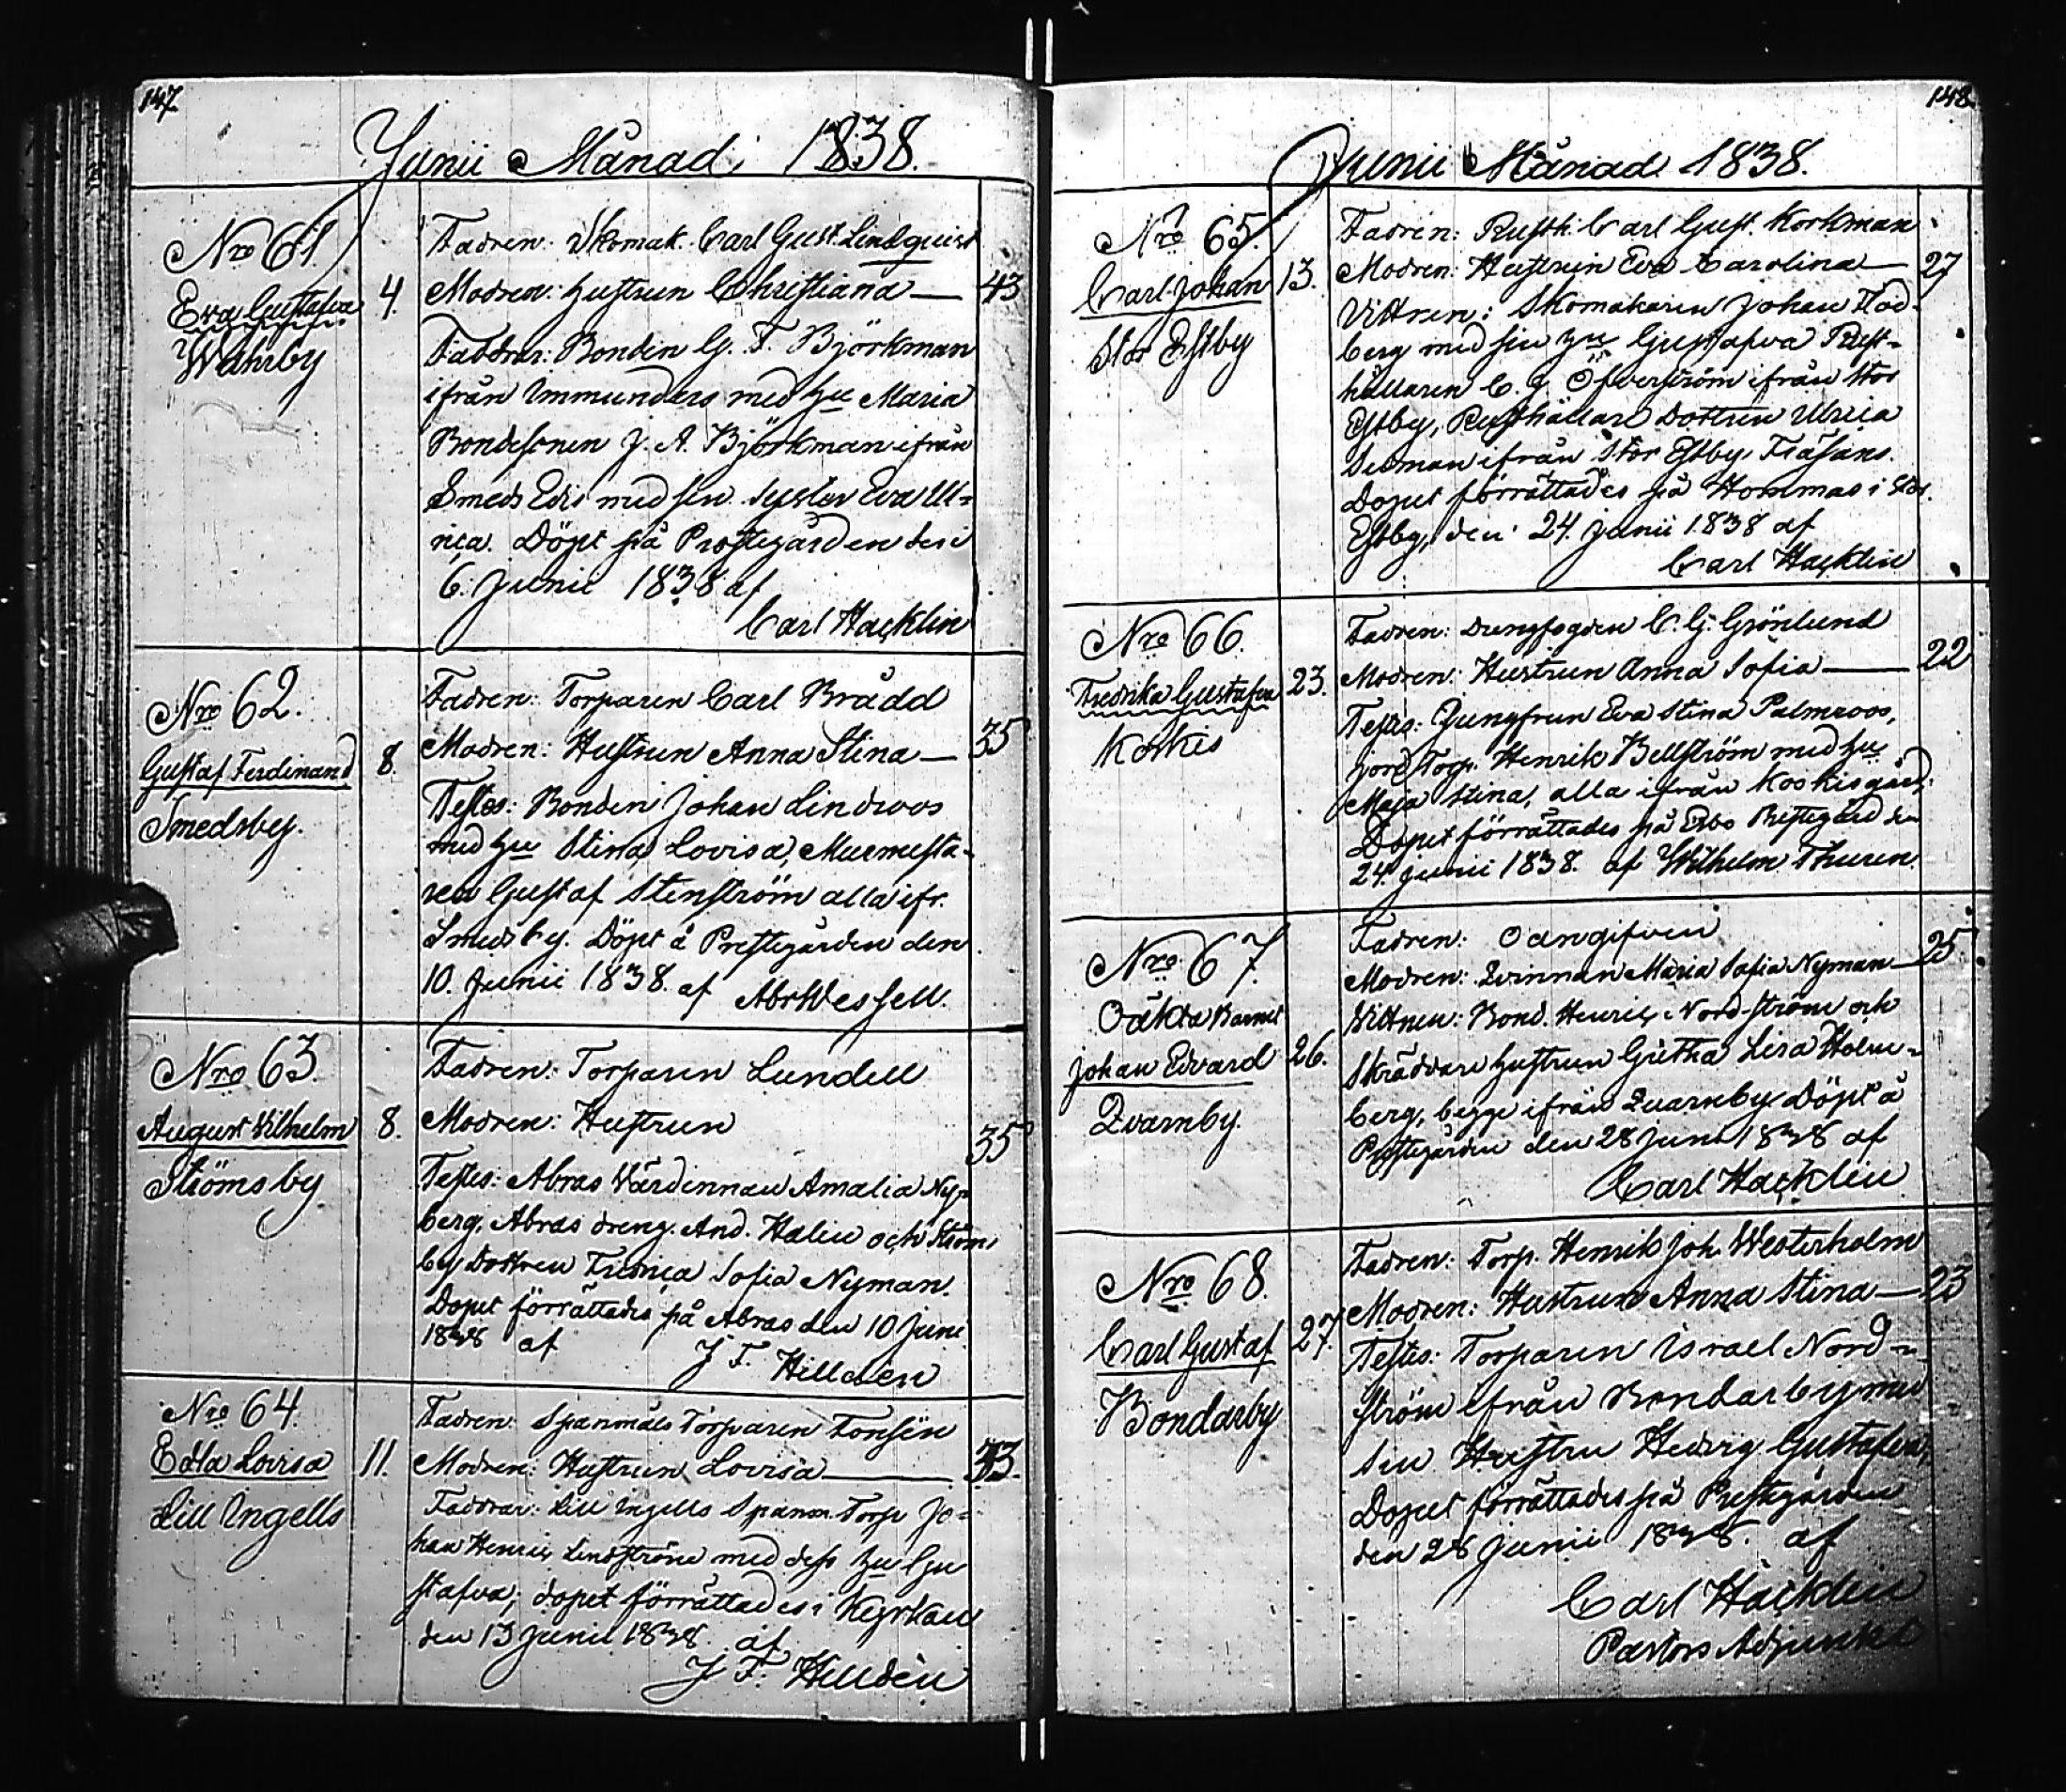 147
Junii Månad 1838.
Nro 61.
Eva Gustafva
Wahrby
4.
Fadren: Skomak. Carl Gust. Lindquist
Modren: Hustrun Christiana — 43
Faddrar: Bonden G. F. Björkman
ifrån Ymmunders med Hu Maria
Bondesonen J. A. Björkman ifrån
Smeds Edis med sin syster Eva Ul=
rica. Döpt på Prostegården den
6. Junii 1838 af
Carl Hacklin
Nro 62.
Gustaf Ferdinand
Smedsby.
8.
Fadren: Torparen Carl Brådd
Modren: Hustrun Anna Stina — 35
Testes: Bonden Johan Lindroos
med Hu Stina Lovisa, Murmesta-
ren Gustaf Stenström alla ifr.
Smedsby. Döpt å Prestegården den
10. Junii 1838. af Abr Wessell.
Nro 63
August Vilhelm
Strömsby
8.
Fadren: Torparen Lundell
Modren: Hustrun 35
Testes: Abras Värdinnan Amalia Ny-
berg, Abras dreng And. Halin och Ströms
by Dottren Fredrica Sofia Nyman.
Dopet förrättades på Abras den 10 Juni
1838 af
J F. Hilldén
Nro 64.
Edla Lovisa
Lill Ingells
11.
Fadren: Spanmåls Torparen Fonsén
Modren: Hustrun Lovisa — 33.
Faddrar: Lill Ingells Spanm. Torp Jo=
han Henric Lindström med dess Hu Gu
stafva; dopet förrättades i Kyrkan
den 13 Junii 1838. af
J F. Hilldén
148.
Junii Månad 1838.
Nro 65.
Carl Johan
Stor Estby
13.
Fadren: Rusth. Carl Gust. Korkman
Modren: Hustrun Eva Carolina — 27
Vittnen: Skomakaren Johan Flod-
berg med sin Hu Gustafva Rust-
hållaren C. J. Öfverström ifrån Stor
Estby, Rusthållare Dottren Ulrica
ifrån Stor Estby Fräsans.
Dopet förrättades på Hommas i Stor
Estby, den 24. Junii 1838 af
Carl Hacklin
Nro 66.
Fredrika Gustafva
Koskis
23.
Fadren: Drengfogden C. G. Grönlund
Modren: Hustrun Anna Sofia — 22
Testes: Jungfrun Eva Stina Palmroos,
jord Torp. Henrik Bellström med Hu
Maja Stina, alla ifrån Koskis gård;
Dopet förrättades på Esbo Prestegård den
24. Junii 1838. af Wilhelm Thuren.
Nro 67.
Oäkta Barnet
Johan Edvard
Qvarnby.
26.
Fadren: Oangifven
Modren: Qvinnan Maria Sofia Nyman — 25
Vittnen: Bond. Henric Nordström och
Skräddare Hustrun Gretha Lisa Holm-
berg, begge ifrån Quarnby Döpt å
Prestegården den 28 Juni 1838 af
Carl Hacklin
Nro 68.
Carl Gustaf
Bondarby
27.
Fadren: Torp. Henrik Joh. Westerholm
Modren: Hustrun Anna Stina — 23
Testes: Torparen Israel Nord-
ström ifrån Bondarby med
sin Hustru Hedvig Gustafva,
Dopet förrättades på Prestegården
den 28 Junii 1838. af
Carl Hacklin
Pastors Adjunkt